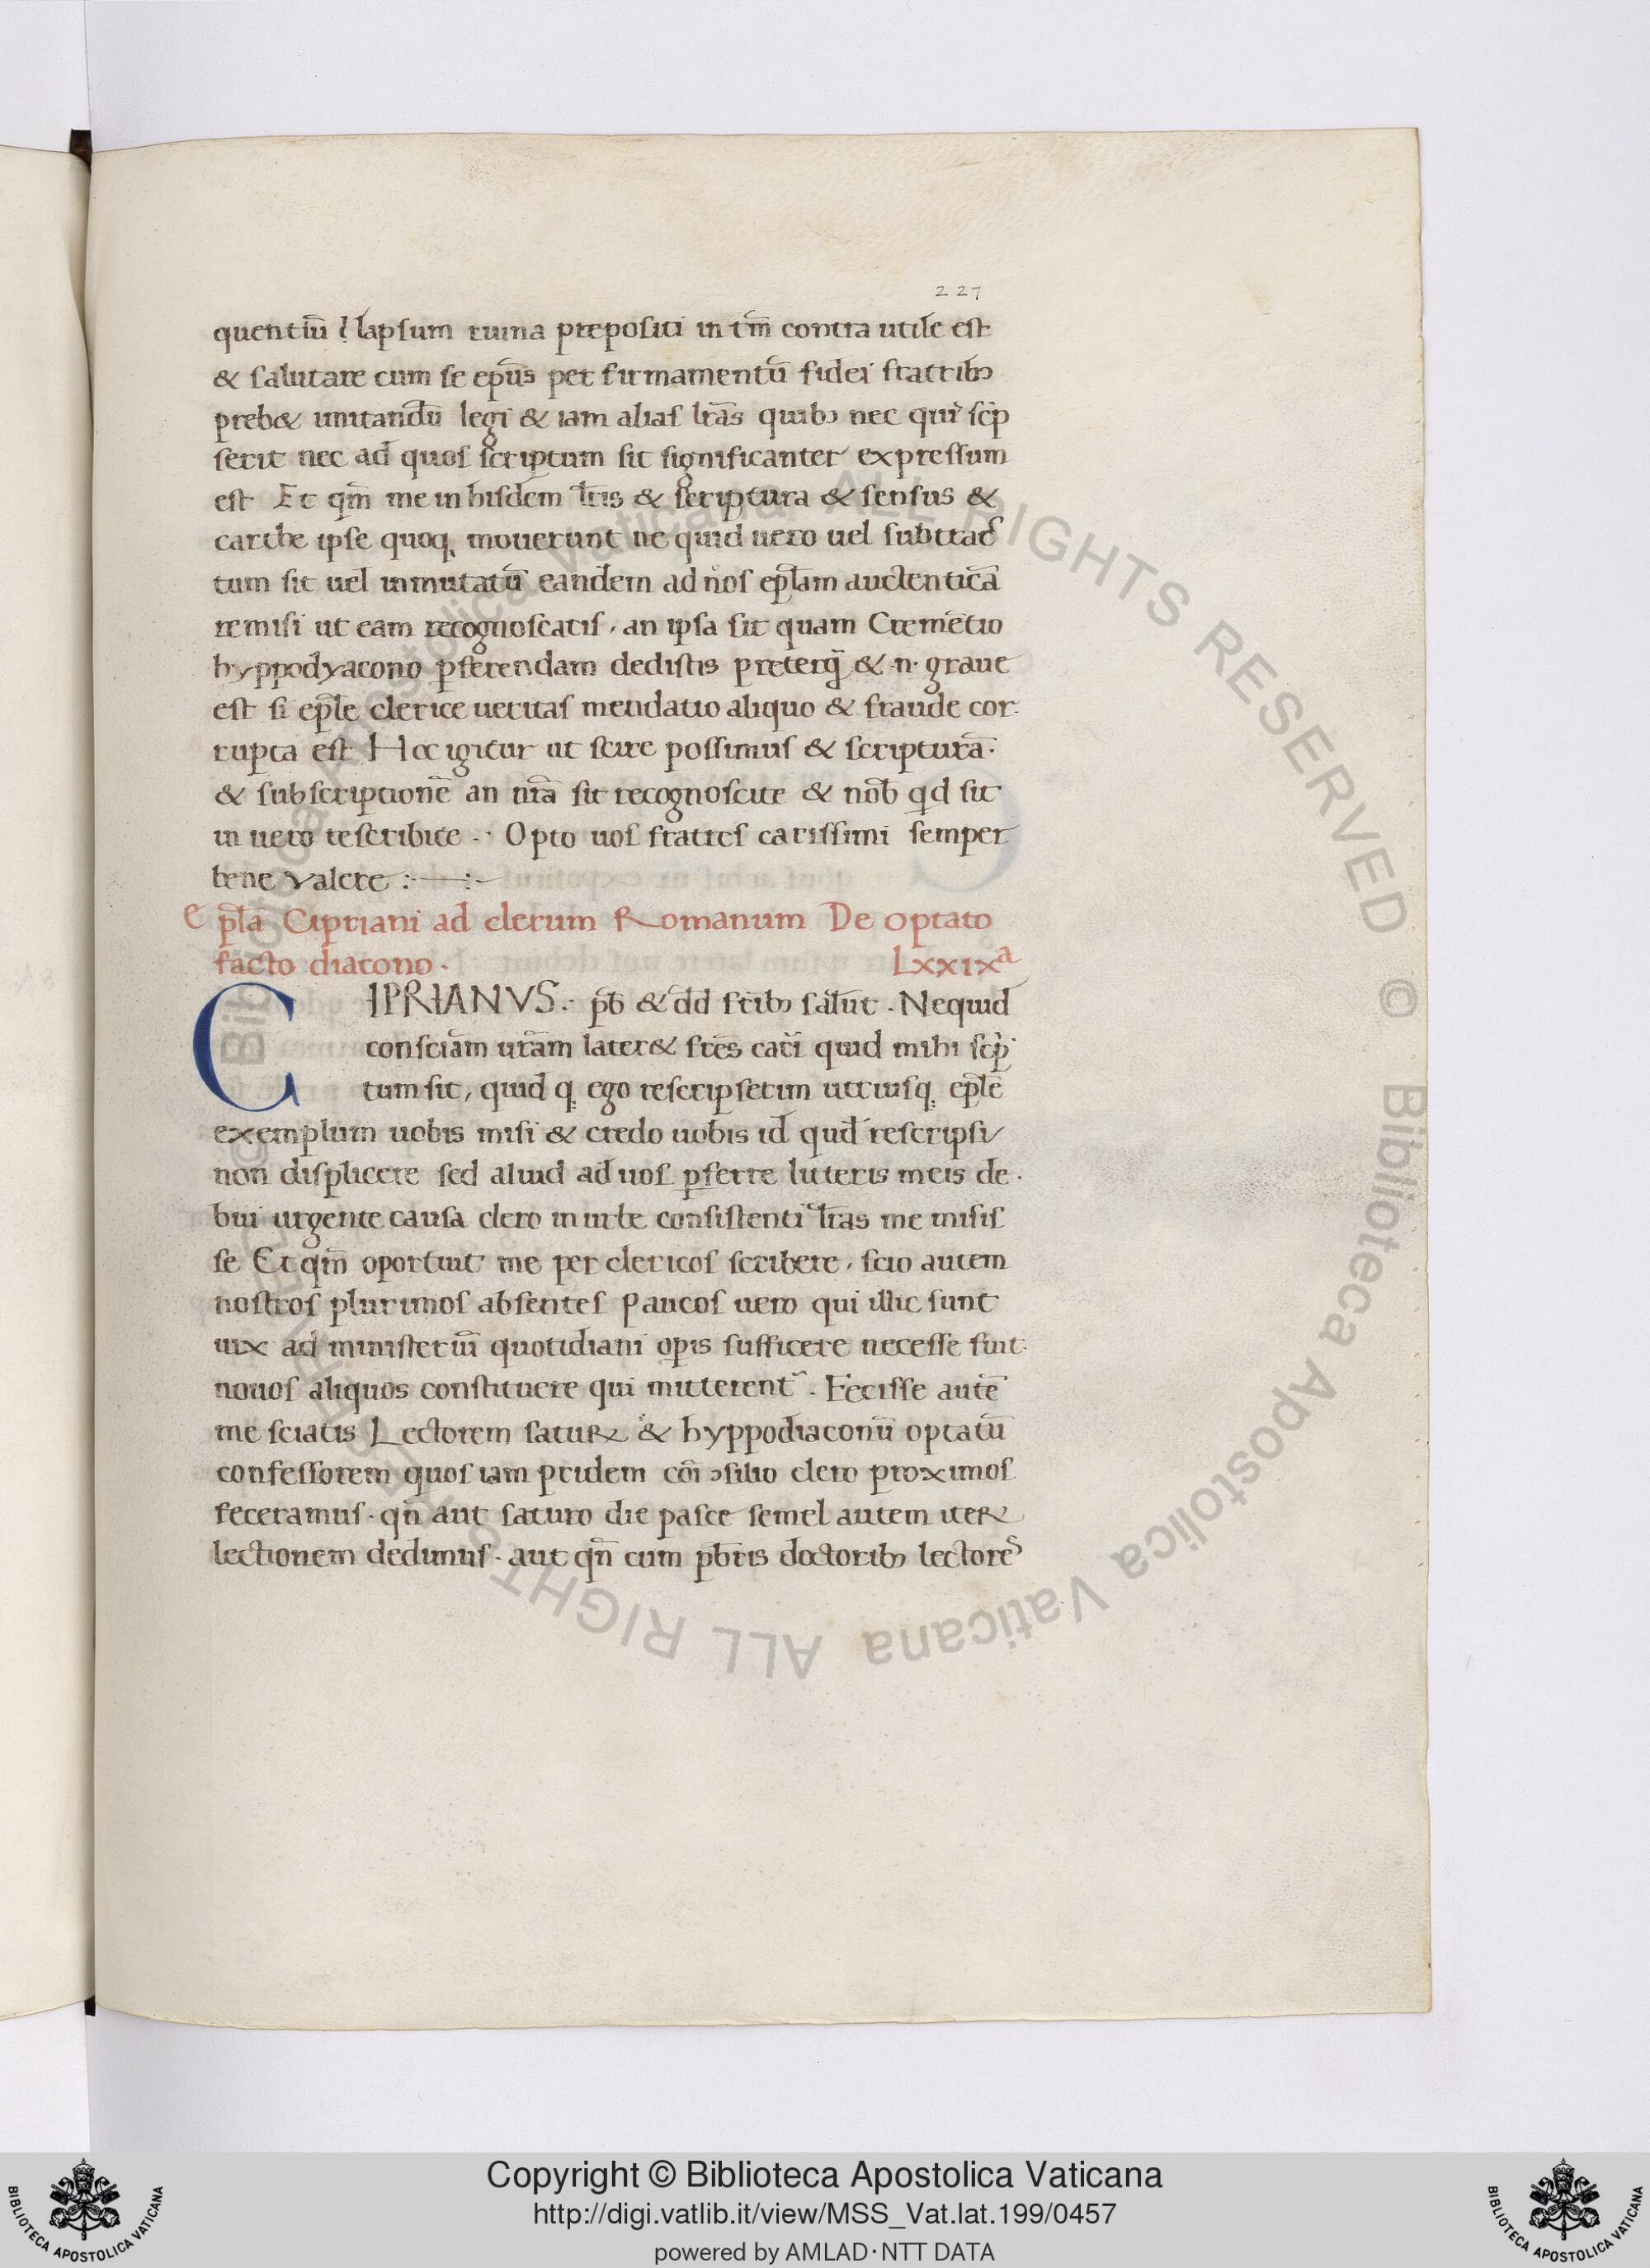 227
quentiū ł lapsum ruina prepositi in tm̄ contra utile est
& salutare cum se ep̄us per firmamentū fidei fratribꝫ
preb& imitandū legi & iam alias lr̄as quibꝫ nec qui scp̄
serit nec ad quos scriptum sit significanter expressum
est Et qm̄ me in hisdem lr̄is & scriptura & sensus &
carthe ipse quoq; mouerunt ne quid uero uel subtrac
tum sit uel inmutatū eandem ad uos ep̄lam auctenticā
remisi ut eam recognoscatis, an ipsa sit quam Cremētio
hyppodyacono ꝑferendam dedistis preterq̄ & .n. graue
est si ep̄le clerice ueritas mendatio aliquo & fraude cor
rupta est Hoc igitur ut scire possimus & scripturā.
& subscriptionē an ur̄a sit recognoscite & nob̄ qd sit
in uero rescribite . Opto uos fratres carissimi semper
bene valere :—:
epl̄a Cipriani ad clerum Romanum De optato
facto diacono . Lxxixᵃ
CIPRIANVS . p̄b & dd fr̄ibꝫ salūt . Nequid
consciam̄ ur̄am later& fr̄es car̄i quid mihi scp̄
tum sit, quid q; ego rescripserim utriusq; ep̄lē
exemplum uobis misi & credo uobis id qud rescripsi
non displicere sed aliud ad uos ꝑferre litteris meis de.
bui urgente causa clero in urbe consistenti lr̄as me misis
se Et qm̄ oportuit me per clericos scribere, scio autem
nostros plurimos absentes Paucos uero qui illic sunt
uix ad ministeriū quotidiani opis sufficere necesse fuit.
nouos aliquos constituere qui mitterentʳ . Fecisse autē
me sciatis Lectorem satuꝝ & hyppodiaconū optatū
confessorem quos iam pridem cōi ↄsilio clero proximos
feceramus . qn̄ aut saturo die pasce semel autem iteꝝ
lectionem dedimus . aut qn̄ cum pb̄ris doctoribꝫ lectores
Copyright © Biblioteca Apostolica Vaticana
http://digi.vatlib.it/view/MSS_Vat.lat.199/0457
powered by AMLAD·NTT DATA